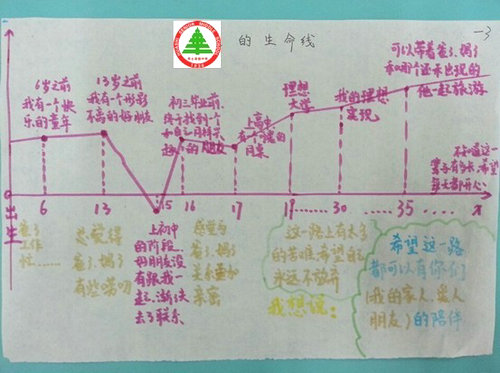 的生命线
-3
6岁之前
我有一个快
乐的童年
13岁之前
我有一个形影
不离的好朋友
初三毕业前,
终于找到一个
和自己同样兴
趣的朋友
上高中
有一个暖的
同桌
理想
大学
我的理想
实现
可以带着爸爸、妈妈
和哪个还未出现的
他一起旅游
不知道这一
要有多长,希望
每天都开心
出生
6
13
15
16
17
19......
30
......
35
......
x
爸爸
工作
忙......
总觉得
爸爸、妈妈
有些唠叨
上初中
的阶段,
好朋友没
有跟我一
起,渐渐失
去了联系
感觉与
爸爸、妈妈
关系更加
亲密
这一路上有太多
的苦难,希望自己
永远不放弃
我想说:
希望这一路
都可以有你们
(我的家人、爱人
朋友)的陪伴